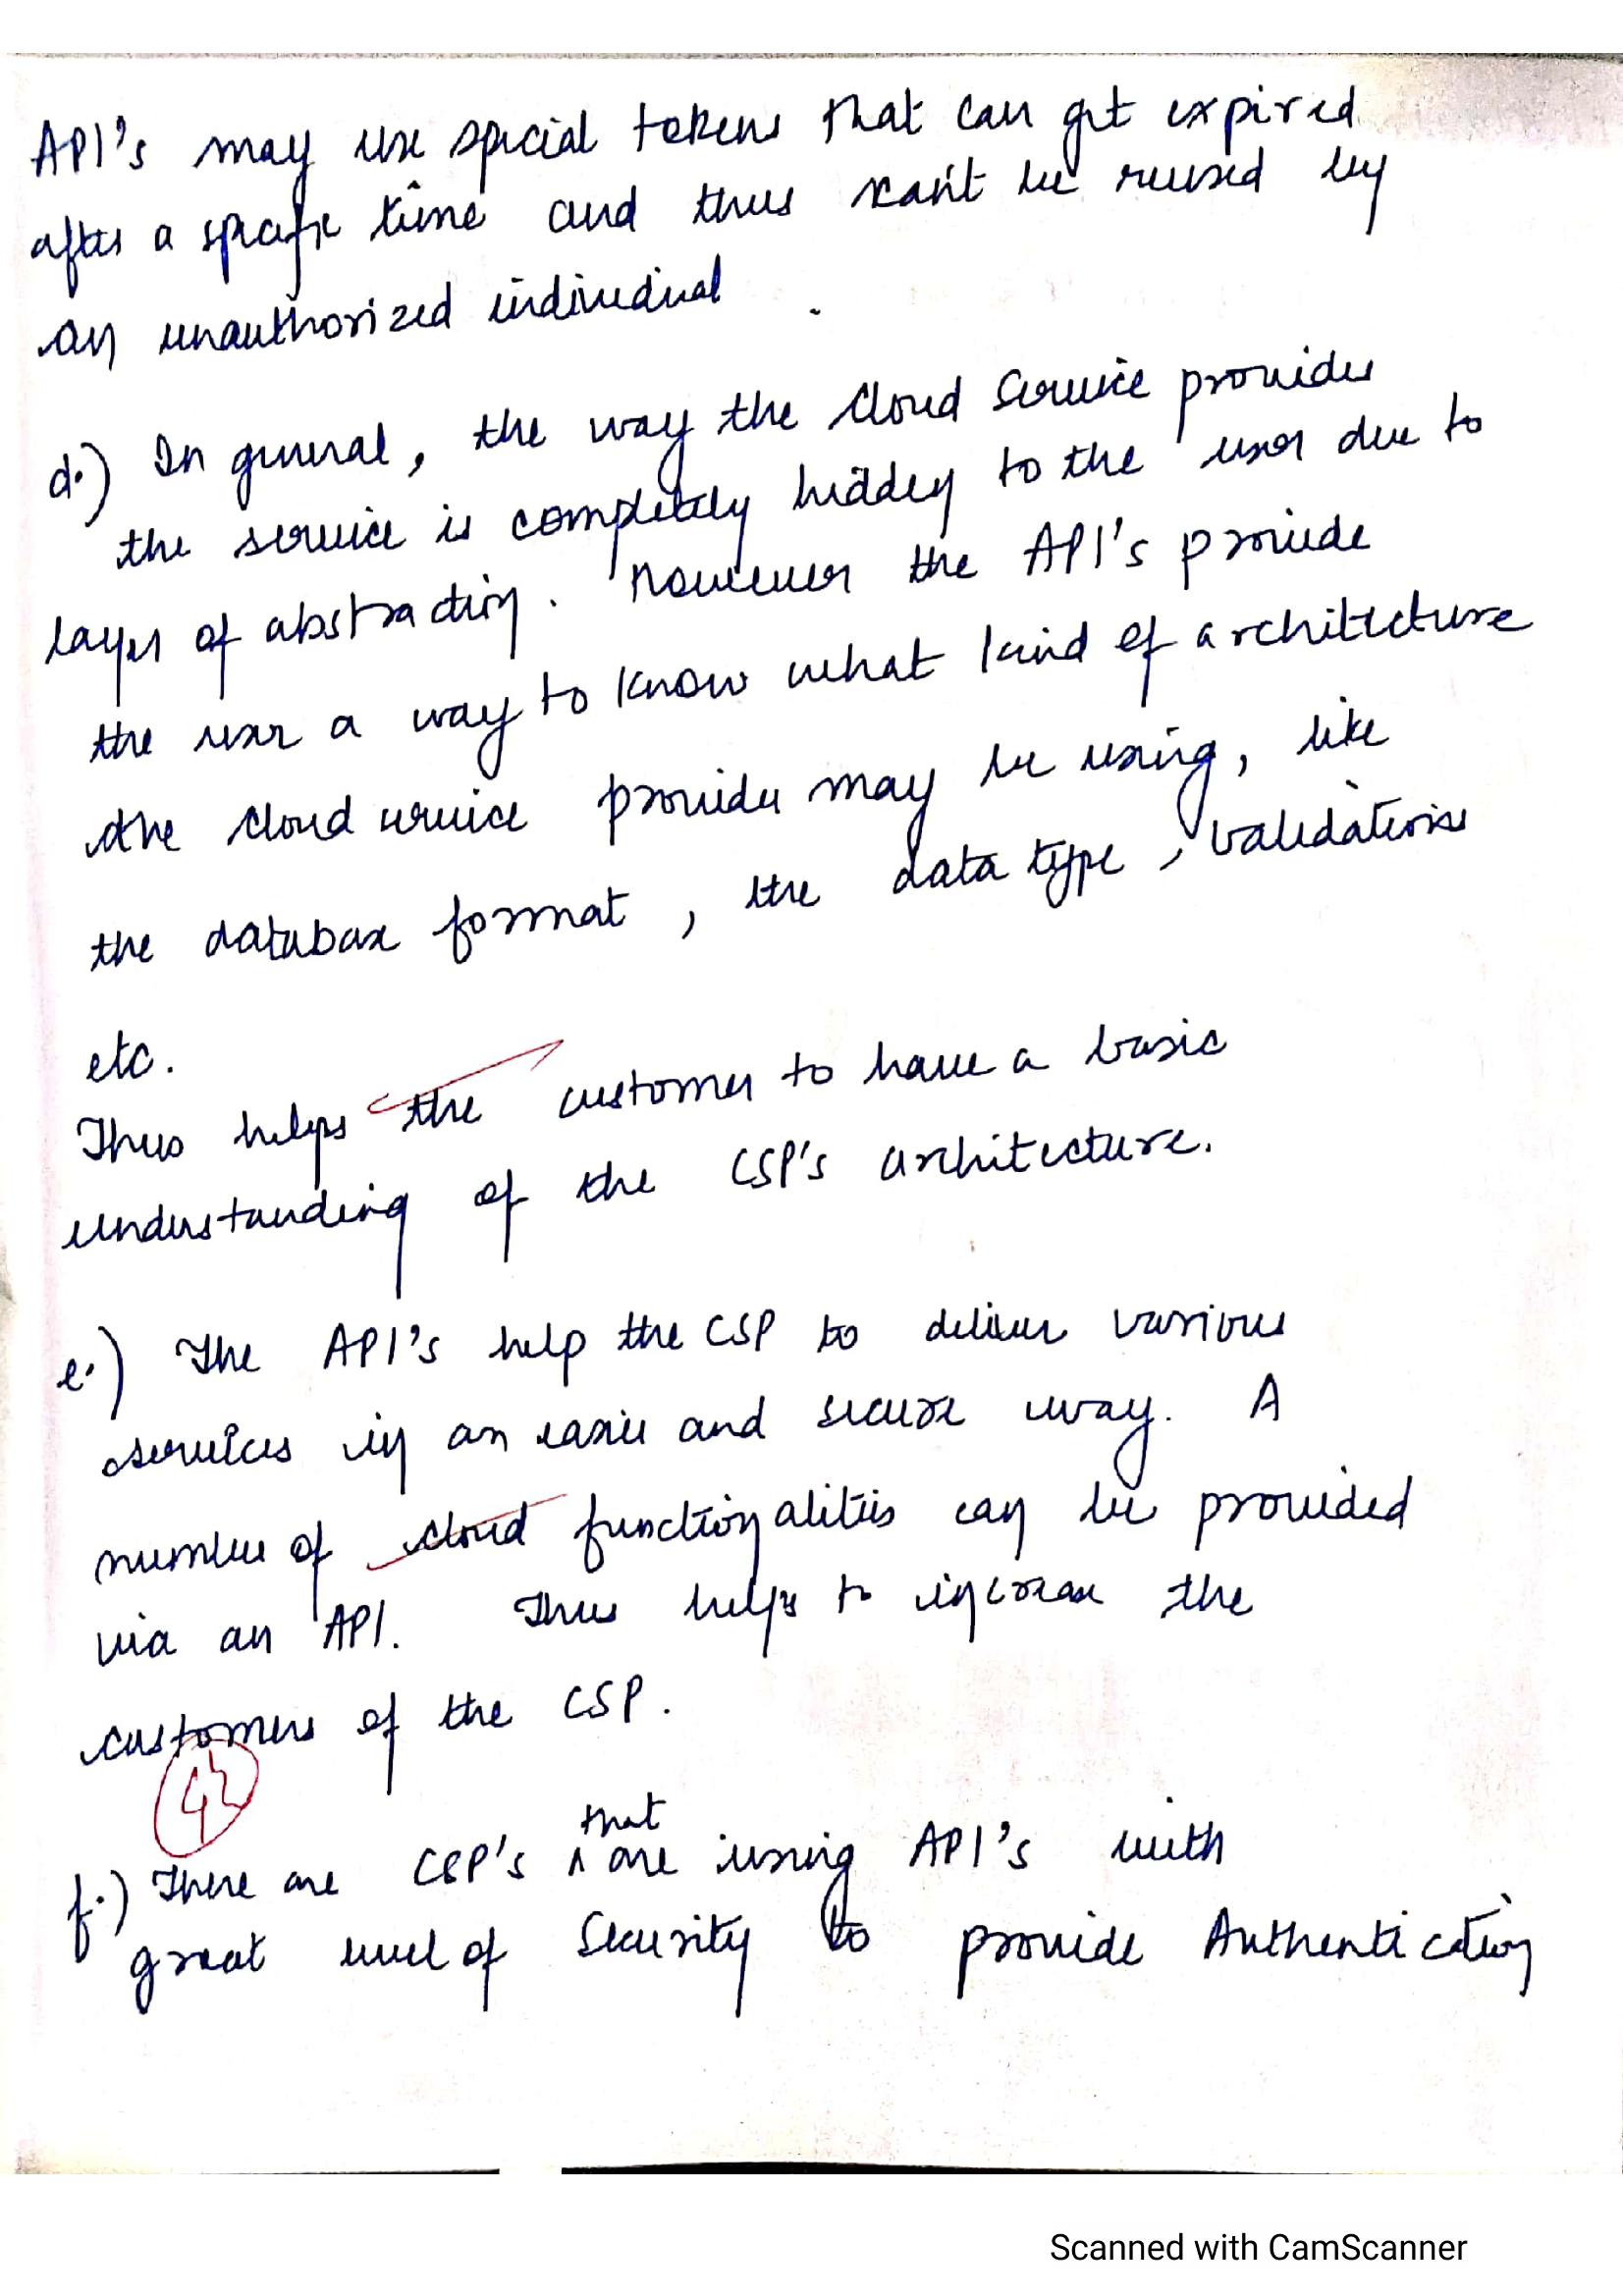 API's may use special tokens that can get expired
after a specific time and thus can't be reused by
an unauthorized individual.
d.) In general, the way the cloud service provides
the service is completely hidden to the user due to
layer of abstraction. However the API's provide
the user a way to know what kind of architecture
the cloud service provider may be using, like
the database format, the data type, validations
etc.
Thus helps the customer to have a basic
understanding of the CSP's architecture.
e.) The API's help the CSP to deliver various
services in an easier and secure way. A
number of cloud functionalities can be provided
via an API. Thus helps to increase the
customers of the CSP.
that
f.) There are CSP's ^ are using API's with
great level of security to provide Authentication
Scanned with CamScanner